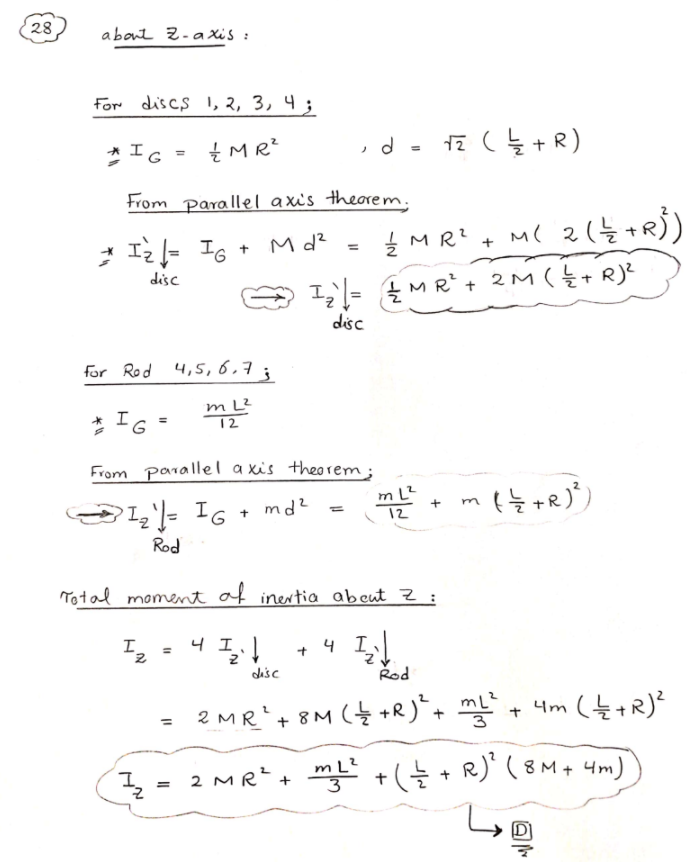 28 about Z-axis :
For discs 1, 2, 3, 4 ;
* I_G = 1/2 M R² , d = √2 ( L/2 + R )
From parallel axis theorem;
* I_Z` ↓ disc = I_G + M d² = 1/2 M R² + M( 2 ( L/2 + R )² )
→ I_Z` ↓ disc = 1/2 M R² + 2 M ( L/2 + R )²
For Rod 4,5,6,7 ;
* I_G = m L² / 12
From parallel axis theorem ;
→ I_Z` ↓ Rod = I_G + m d² = m L² / 12 + m ( L/2 + R )²
Total moment of inertia about Z :
I_Z = 4 I_Z` ↓ disc + 4 I_Z` ↓ Rod
= 2 M R² + 8 M ( L/2 + R )² + m L² / 3 + 4m ( L/2 + R )²
I_Z = 2 M R² + m L² / 3 + ( L/2 + R )² ( 8 M + 4m )
→ D